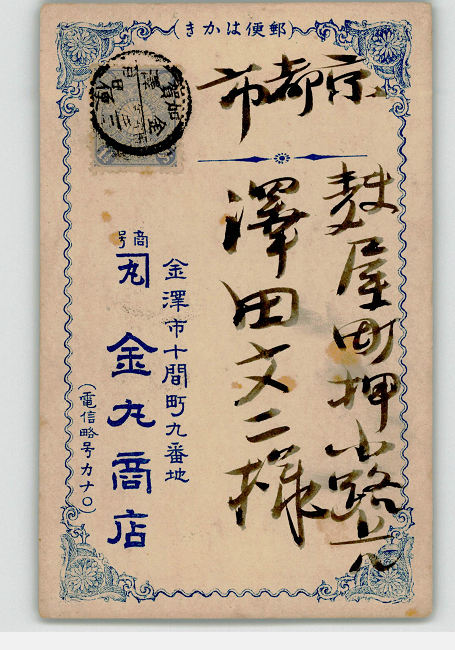 (郵便はかき)
京都市
麩屋町押小路
澤田文二様
金澤市十間町九番地
商号
金丸商店
(電信略号カナ〇)
加賀
金澤